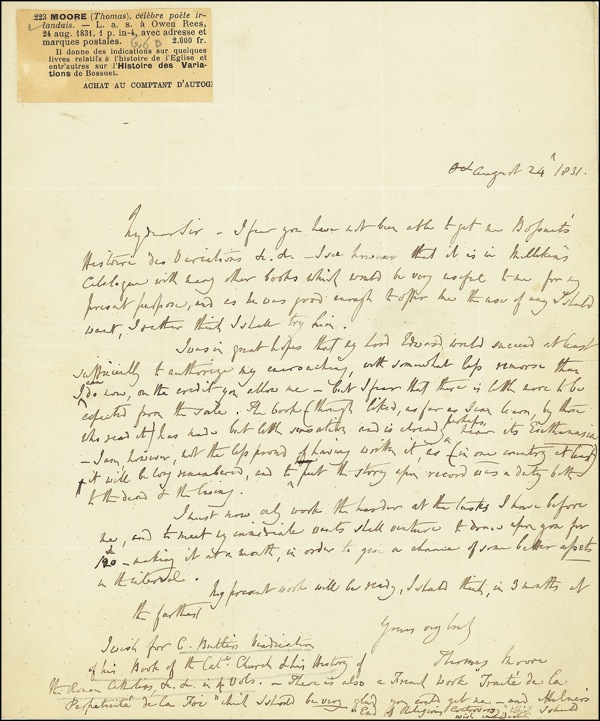 223 MOORE (Thomas), célèbre poète ir-
landais. — L. a. s. à Owen Rees,
24 aug. 1831, 1 p. in-4, avec adresse et
marques postales. 2.000 fr.
Il donne des indications sur quelques
livres relatifs à l'histoire de l'Eglise et
entr'autres sur l'Histoire des Varia-
tions de Bossuet.
ACHAT AU COMPTANT D'AUTOG
August 24th 1831.
My dear Sir – I fear you have not been able to get me Bossuet's
Histoire des Variations &c. &c. – I see however that it is in Milliken's
Catalogue with many other books which would be very useful to me for my
present purpose, and as he was good enough to offer me the use of any I should
want, I rather think I shall try him.
I was in great hopes that my Lord Edward would succeed at least
sufficiently to authorize my encroaching, with somewhat less remorse than
I can do now, on the credit you allow me – but I fear that there is little more to be
expected from the sale. The book (though liked, as far as I can learn, by those
who read it) has made but little sensation and is already perhaps, near its Euthanasia
– I am, however, not the less proud of having written it, as (in one country at least)
it will be long remembered, and to put the story upon record was a duty both
to the dead & the living.
I must now only work the harder at the tasks I have before
me, and to meet my immediate wants shall venture to draw upon you for
– making it at a month, in order to give a chance of some better assets
in the interval.
My present work will be ready, I should think, in 3 months at
the farthest
Yours very truly
Thomas Moore
I wish for C. Butler's Vindication
of his Book of the Catc. Church & his History of
the Roman Catholics, &c. &c. in 4 Vols. – There is also a French work "Traité de la
Perpetuité de la Foi" which I should be very glad you could get me – and Milner's
End of Religious Controversy which I should